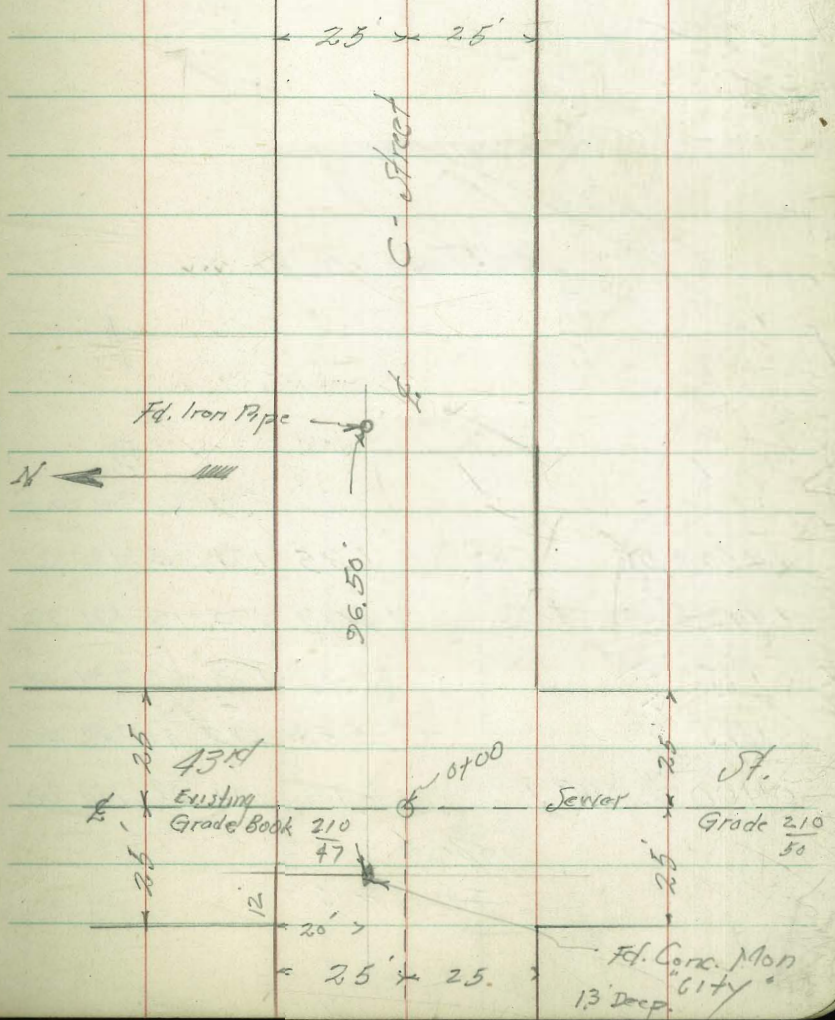 25' 25'
C - Street
℄
Fd. Iron Pipe
N
96.50'
25
43rd
0+00
25'
St.
℄
Existing
Sewer
Grade Book 210
47
Grade 210
50
25'
12
25'
20'
25' 25.
Fd. Conc. Mon
"City"
1.3' Deep.